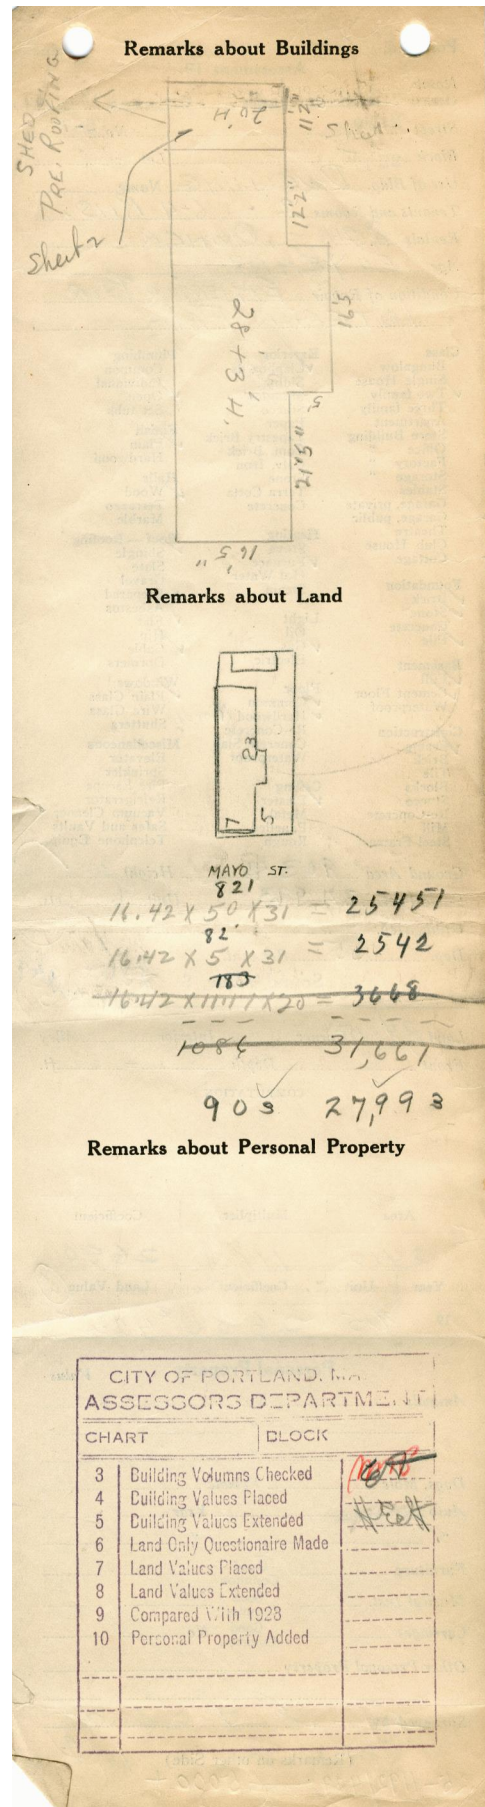 Remarks about Buildings
SHED
PRE. ROOFING
Sheet 2
20' H
11'2"
12'2"
16'5
28'+3' H.
5'
16'5"
Remarks about Land
23
7 5
MAYO ST.
821
16.42 X 50 X 31 = 25451
82
16.42 X 5 X 31 = 2542
183
16.42 X 11.17 X 20 = 3668
1086 31,661
903 27,993
Remarks about Personal Property
CITY OF PORTLAND, MA
ASSESSORS DEPARTMENT
CHART BLOCK
3 Building Volumns Checked
4 Building Values Placed
5 Building Values Extended
6 Land Only Questionaire Made
7 Land Values Placed
8 Land Values Extended
9 Compared With 1923
10 Personal Property Added